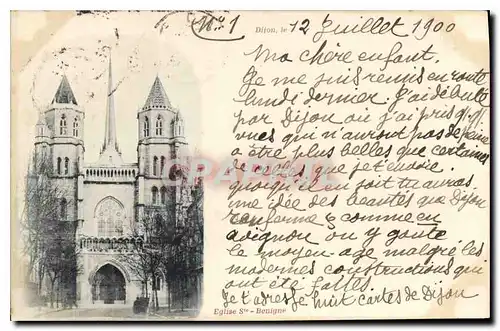 No 1
Dijon, le 12 Juillet 1900
Ma chère enfant,
Je me suis remis en route
lundi dernier. J'ai débuté
par Dijon où j'ai pris q.q.
vues qui n'auront pas de peine
à être plus belles que certaines
de celles que je t'envoie.
quoiqu'il en soit tu auras
une idée des beautés que Dijon
renferme & comme en
Avignon on y goûte
le moyen age malgré les
modernes constructions qui
ont été faites.
Je t'adresse huit cartes de Dijon
Eglise Ste - Benigne
delcampe.net